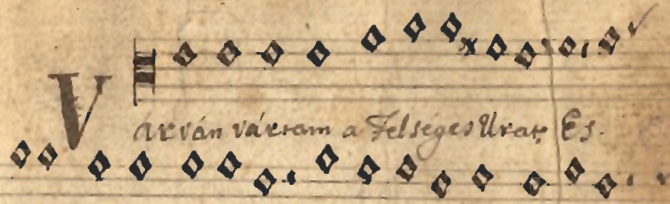 Várván vártam a Felséges Urat, Es.